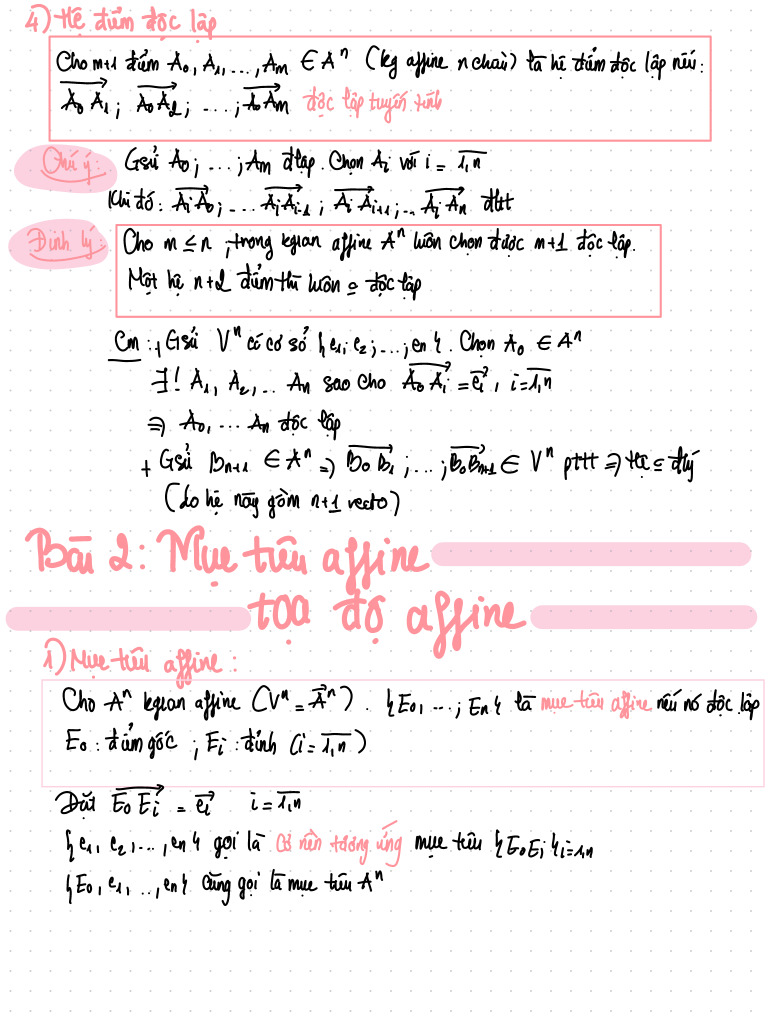 4) Hệ điểm độc lập
Cho m+1 điểm A₀, A₁, ..., Aₘ ∈ Aⁿ (kg affine n chiều) là hệ điểm độc lập nếu:
$\overrightarrow{A_0A_1}$; $\overrightarrow{A_0A_2}$; ...; $\overrightarrow{A_0A_m}$ độc lập tuyến tính
Chú ý: Gsử A₀; ...; Aₘ đlập. Chọn Aᵢ với i = $\overline{1,n}$
Khi đó: $\overrightarrow{A_iA_0}$; ... $\overrightarrow{A_iA_{i-1}}$; $\overrightarrow{A_iA_{i+1}}$; ... $\overrightarrow{A_iA_n}$ đltt
Định lý: Cho m ≤ n, trong kgian affine Aⁿ luôn chọn được m+1 độc lập.
Một hệ n+2 điểm thì luôn độc lập
Cm: + Gsử Vⁿ có cơ sở {e₁; e₂; ...; en}. Chọn A₀ ∈ Aⁿ
∃! A₁, A₂, ... An sao cho $\overrightarrow{A_0A_i}$ = $\overrightarrow{e_i}$, i = $\overline{1,n}$
⇒ A₀, ... An độc lập
+ Gsử Bₙ₊₁ ∈ Aⁿ ⇒ $\overrightarrow{B_0B_1}$; ...; $\overrightarrow{B_0B_{n+1}}$ ∈ Vⁿ pttt ⇒ đlý
(do hệ này gồm n+1 vectơ)
Bài 2: Mục tiêu affine
tọa độ affine
1) Mục tiêu affine:
Cho Aⁿ kgian affine (Vⁿ = $\overrightarrow{A}^n$). {E₀, ...; En} là mục tiêu affine nếu nó độc lập
E₀: điểm gốc; Eᵢ: đỉnh (i = $\overline{1,n}$)
Đặt $\overrightarrow{E_0E_i}$ = $\overrightarrow{e_i}$ i = $\overline{1,n}$
{e₁, e₂, ..., en} gọi là cơ nền tương ứng mục tiêu {E₀Eᵢ}i=1,n
{E₀, e₁, .., en} cũng gọi là mục tiêu Aⁿ